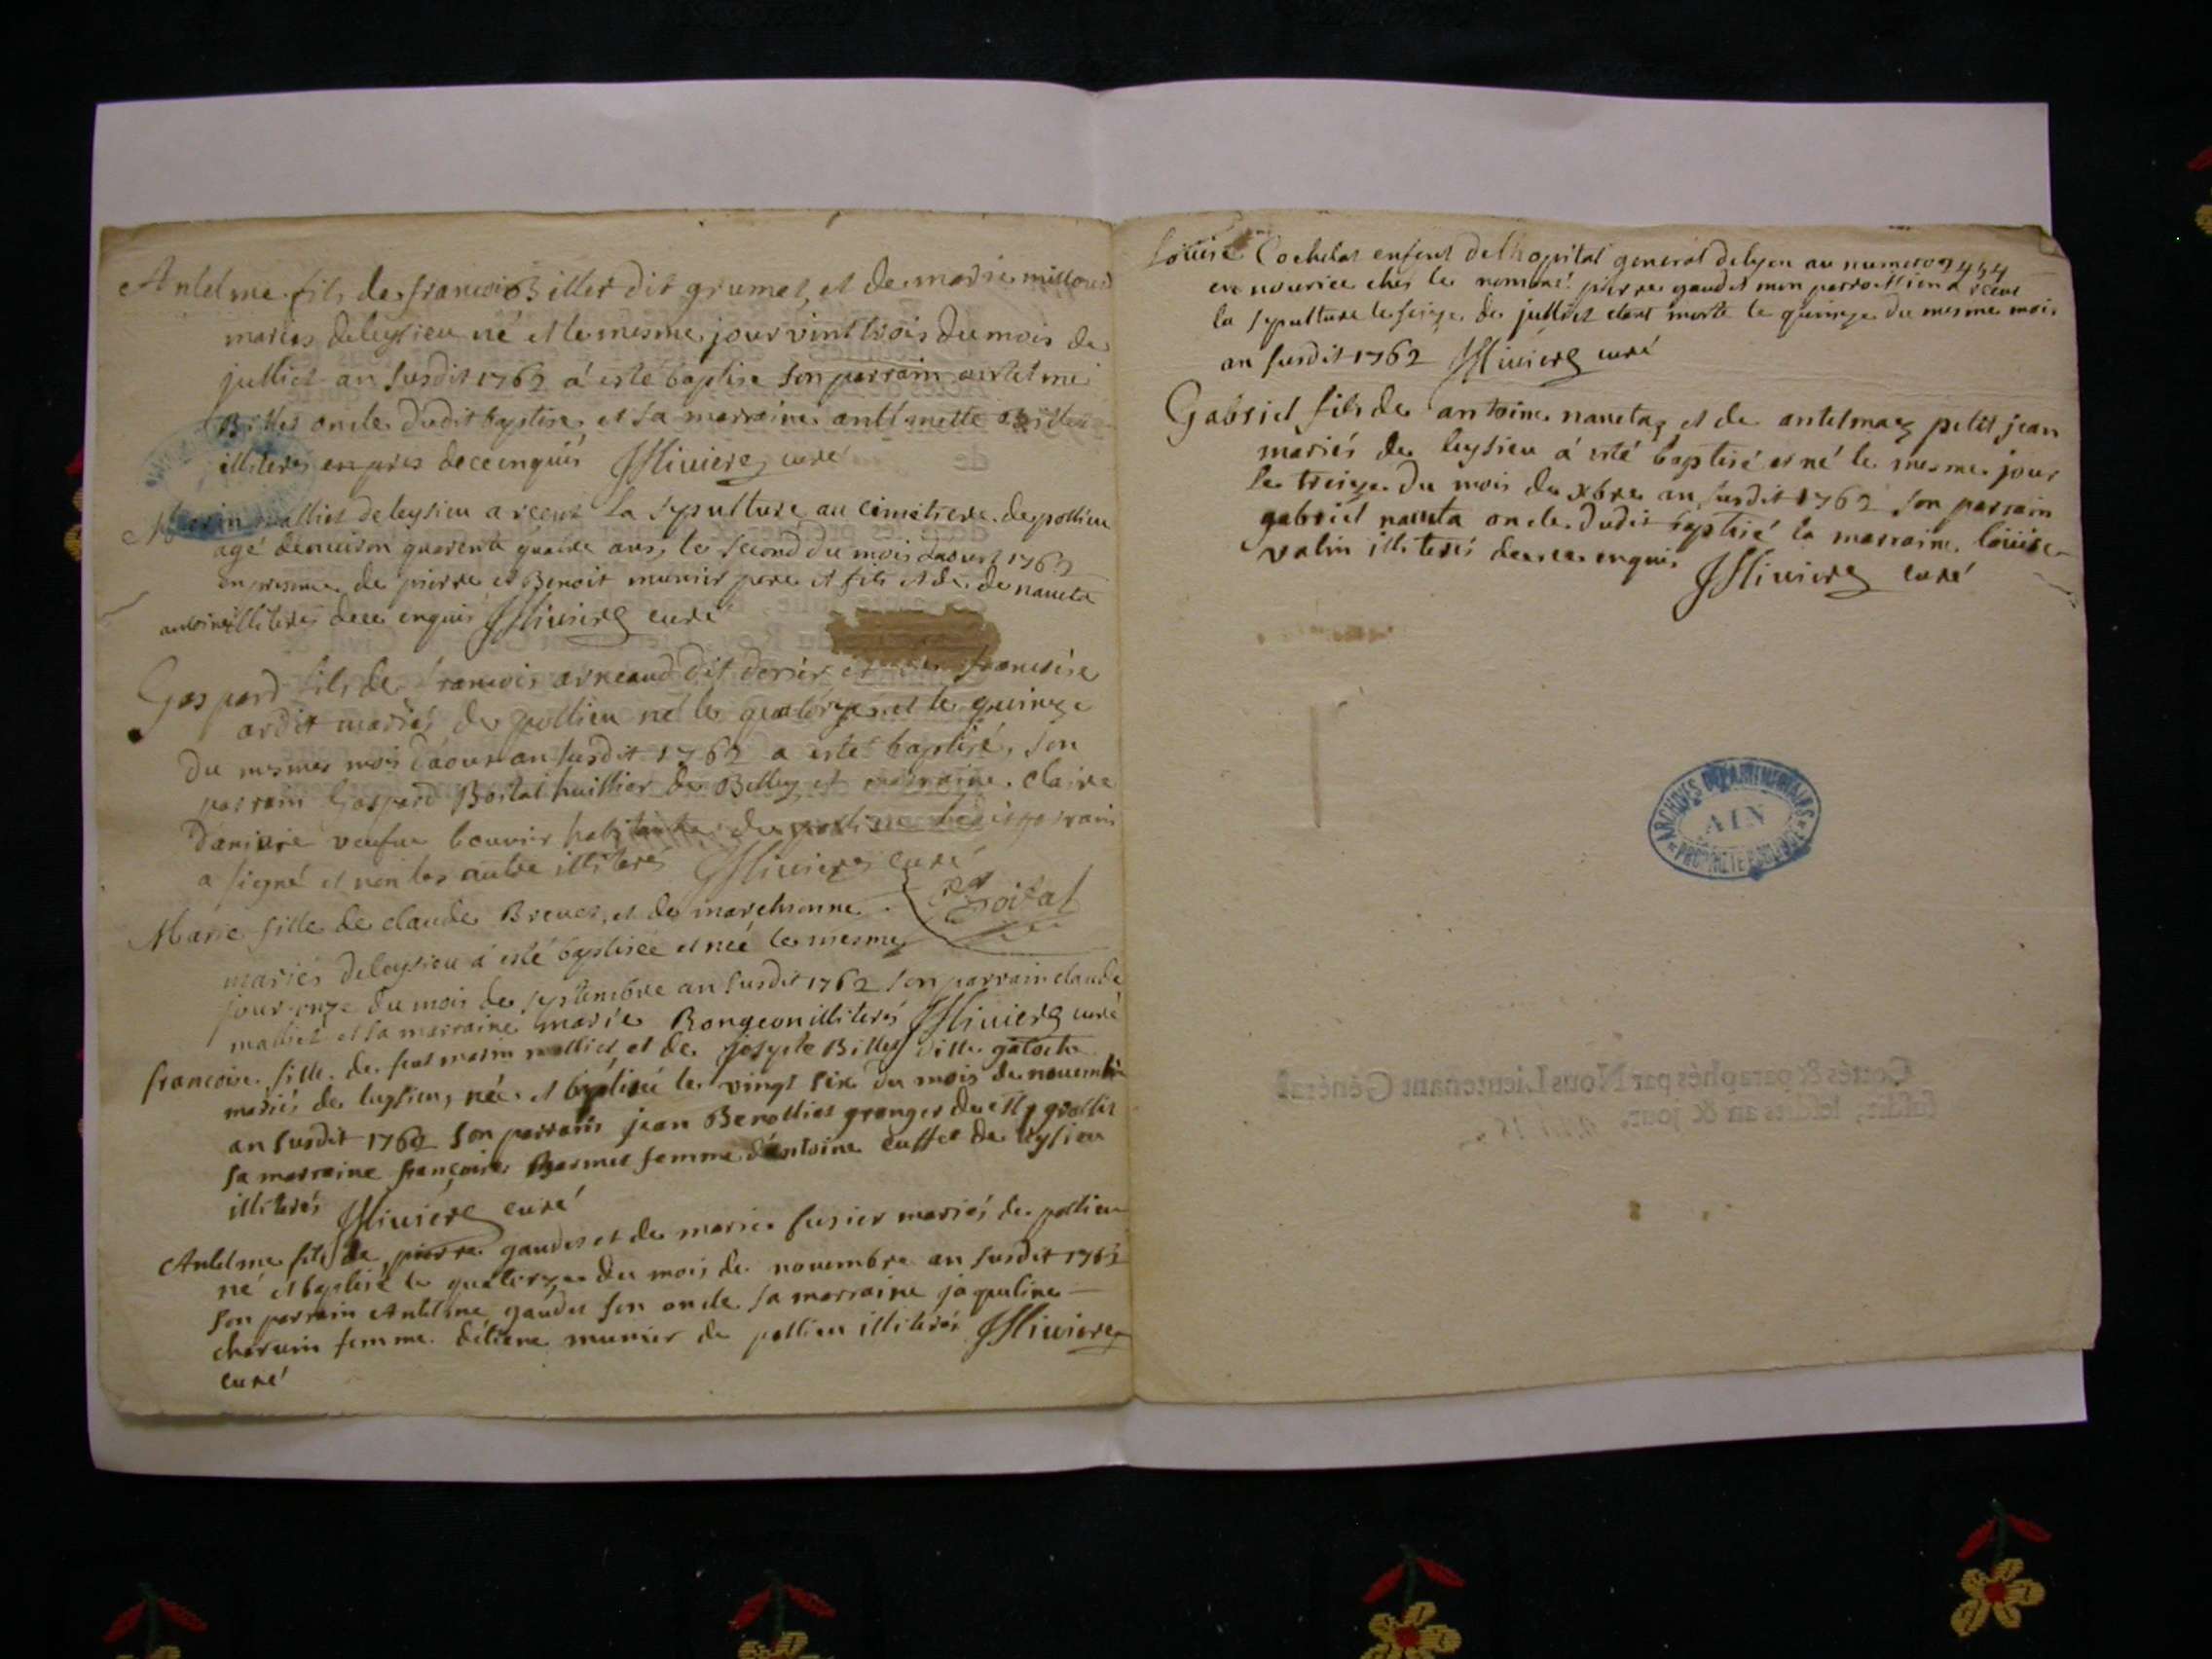 Antelme fils de francois Billet dit grumet, et de marie milloud
mariés de leysieu né et le mesme jour vint trois du mois de
julliet an susdit 1762 á esté baptisé son parrain antelme
Billet oncle dudit baptisé et sa marraine antelmette
illiterés de ce enquis Sliviere curé
malliet de leysieu a receut la sepulture au cimetiere de pollieu
agé denuiron quarente quatre ans, le second du mois daoust 1762
en presence de pierre et Benoit munier pere et fils et de naueta
antoine illiterés de ce enquis Sliviere curé
Gaspard fils de francois arneaud dit dornier et francoise
ardit mariés de pollieu né le quatorze et le quinze
du mesme mois d'aoust an susdit 1762 a esté baptisé, son
parrain Gaspard Boital huissier de Belley et marraine claire
veufue bouvier habitante de parrain
a signé et non les autre illiterés Sliviere curé
Boital
Marie fille de claude Breuet, et de
mariés de leysieu á esté baptisée et neé le mesme
jour onze du mois de septembre an susdit 1762 son parrain claude
malliet et sa marraine marie Rongeon illiterés Sliviere curé
francoise fille de feu marin malliet et de josepte Billet ditte
mariés de leysieu, née et baptisée le vingt six du mois de novembre
an susdit 1762 son parrain jean Berolliet granger
sa marraine françoise Barmet femme d'antoine cusset de leysieu
illiterés Sliviere curé
Antelme fils de pierre gaudet et de marie fusier mariés de pollieu
né et baptisé le quatorze du mois de novembre an susdit 1762
son parrain Antelme gaudet son oncle sa marraine jaqueline
charuin femme détiene munier de pollieu illiterés Sliviere
curé
Louise Cochelat enfent de l'hopital general de lyon au numero 9454
en nourice ches le nommé pierre gaudet mon parroissien a receu
la sepulture le seize de julliet etant morte le quinze du mesme mois
an susdit 1762 Sliviere curé
Gabriel fils de antoine naueta, et de antelmaz petit jean
mariés de leysieu á esté baptisé et né le mesme jour
le treize du mois de xbre an susdit 1762 son parrain
gabriel naueta oncle dudit baptisé la marraine louise
valin illiterés de ce enquis
Sliviere curé
ARCHIVES DÉPARTEMENTALES
AIN
PROPRIÉTÉ PUBLIQUE
Cottés & paraphés par Nous Lieutenant Général
susdit, lesdits an & jour.